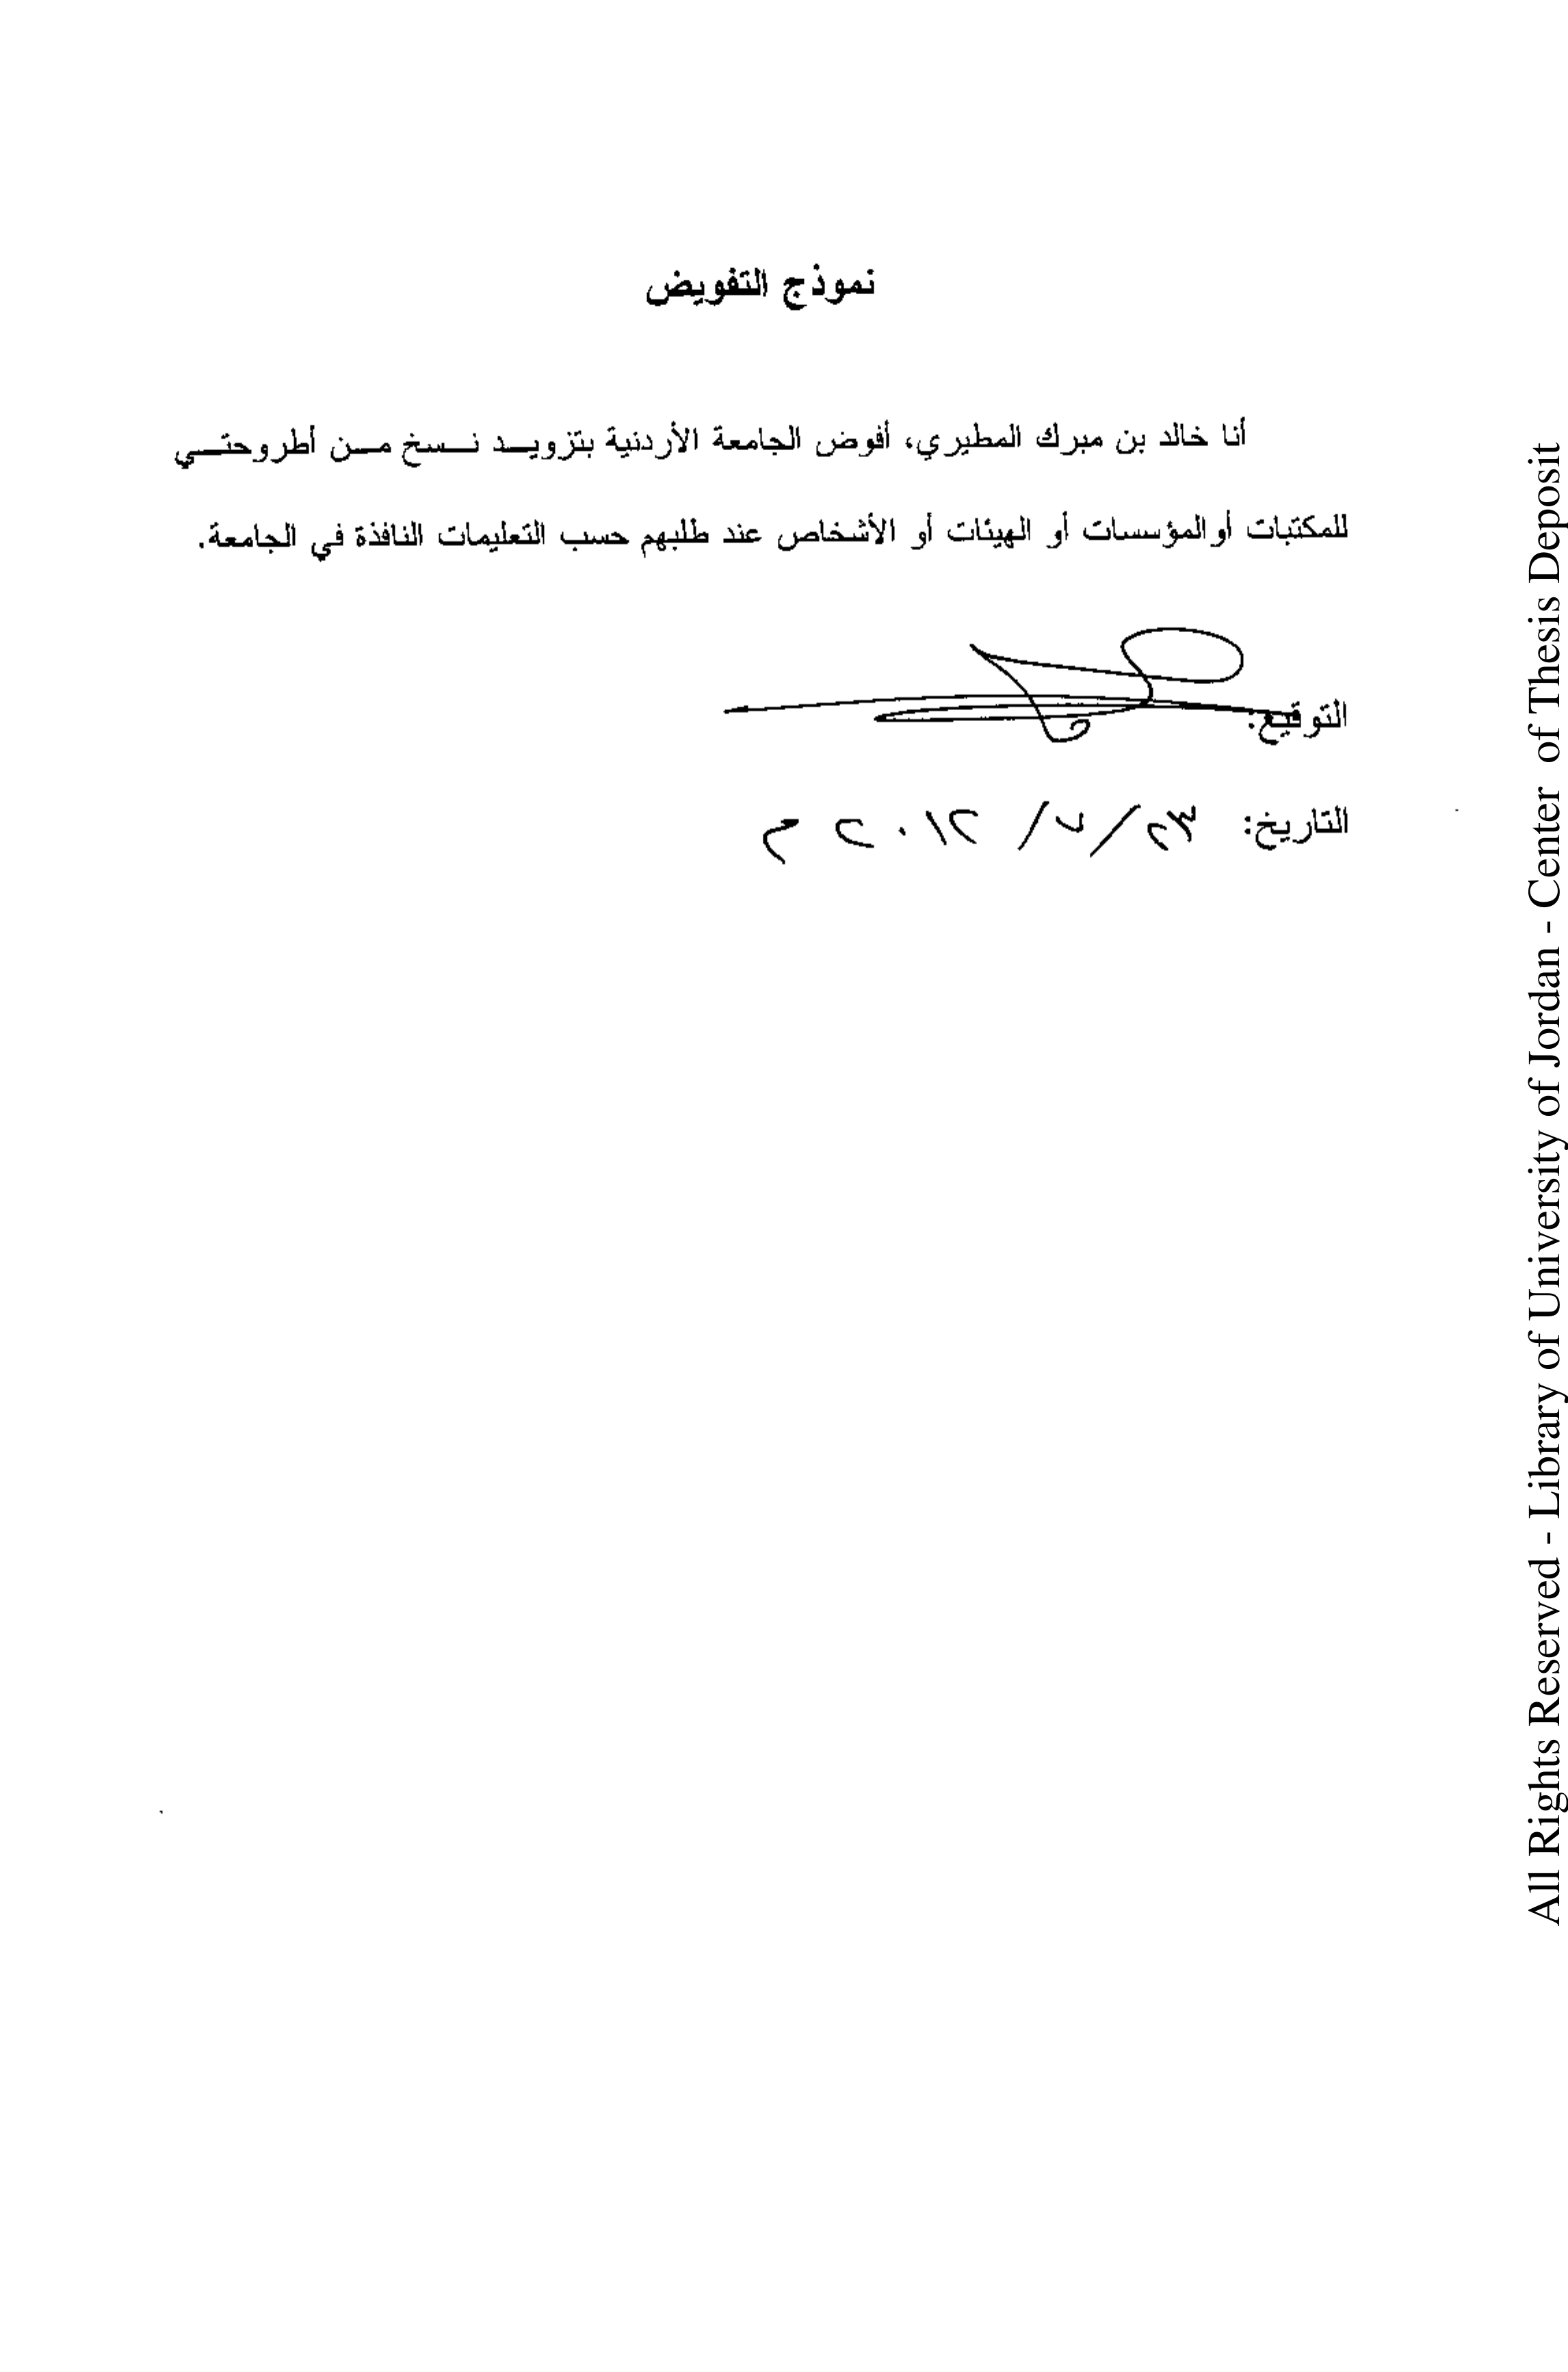 نموذج التفويض
أنا خالد بن مبرك المطيري، أفوض الجامعة الأردنية بتزويد نسخ من أطروحتي
للمكتبات أو المؤسسات أو الهيئات أو الأشخاص عند طلبهم حسب التعليمات النافذة في الجامعة.
التوقيع:
التاريخ: ٢٣ / ٧ / ٢٠١٢ م
All Rights Reserved - Library of University of Jordan - Center of Thesis Deposit